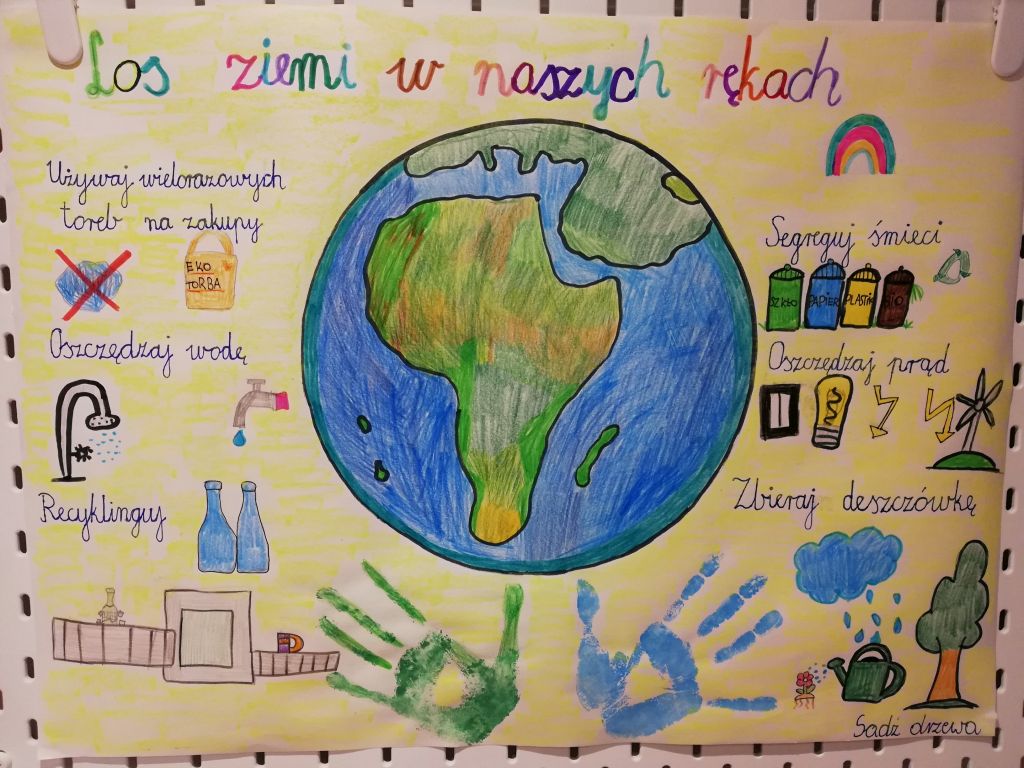 Los ziemi w naszych rękach
Używaj wielorazowych
toreb na zakupy
EKO
TORBA
Oszczędzaj wodę
Recyklinguj
Segreguj śmieci
SZKŁO PAPIER PLASTIK BIO
Oszczędzaj prąd
Zbieraj deszczówkę
Sadź drzewa